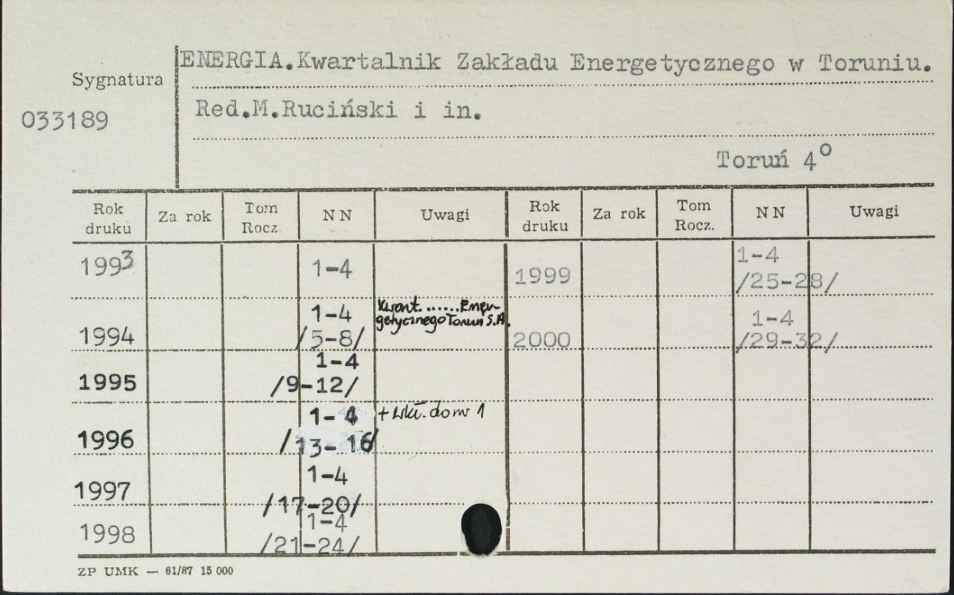 ENERGIA.Kwartalnik Zakładu Energetycznego w Toruniu.
Sygnatura
033189
Red.M.Ruciński i in.
Toruń 4°
Rok druku Za rok Tom Rocz. NN Uwagi Rok druku Za rok Tom Rocz. NN Uwagi
1993 1-4 1999 1-4 /25-28/
1994 1-4 /5-8/ Kwart. ...... Ener-
getycznego Toruń S.A. 2000 1-4 /29-32/
1995 1-4 /9-12/
1996 1-4 /13-16/ + wkł. do nr 1
1997 1-4 /17-20/
1998 1-4 /21-24/
ZP UMK — 61/87 15 000